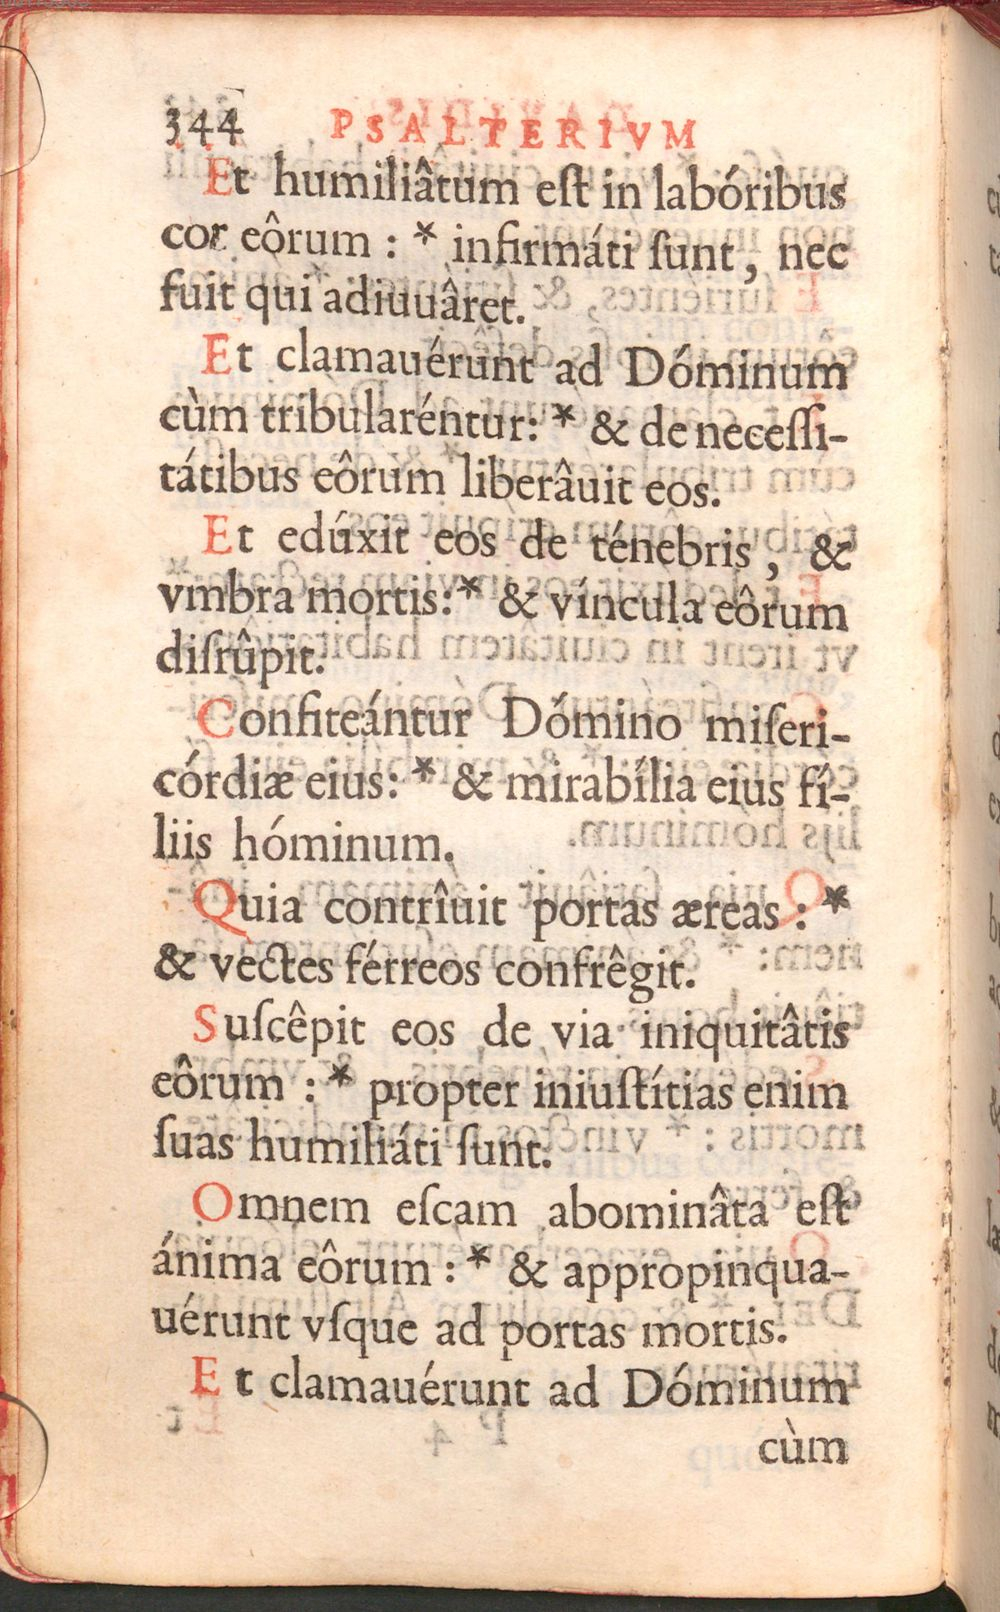 344 PSALTERIVM
Et humiliâtum eſt in labóribus
cor eôrum : * infirmáti ſunt, nec
fuit qui adiuuâret.
Et clamauérunt ad Dóminum
cùm tribularéntur: * & de neceſſi-
tátibus eôrum liberâuit eos.
Et edúxit eos de ténebris, &
vmbra mortis: * & víncula eôrum
diſrûpit.
Confiteántur Dómino miſeri-
córdiæ eius: * & mirabília eius fí-
liis hóminum.
Quia contrîuit portas æreas : *
& vectes férreos confrêgit.
Suſcêpit eos de via iniquitâtis
eôrum : * propter iniuſtítias enim
ſuas humiliáti ſunt.
Omnem eſcam abominâta eſt
ánima eôrum : * & appropinqua-
uérunt vſque ad portas mortis.
Et clamauérunt ad Dóminum
cùm